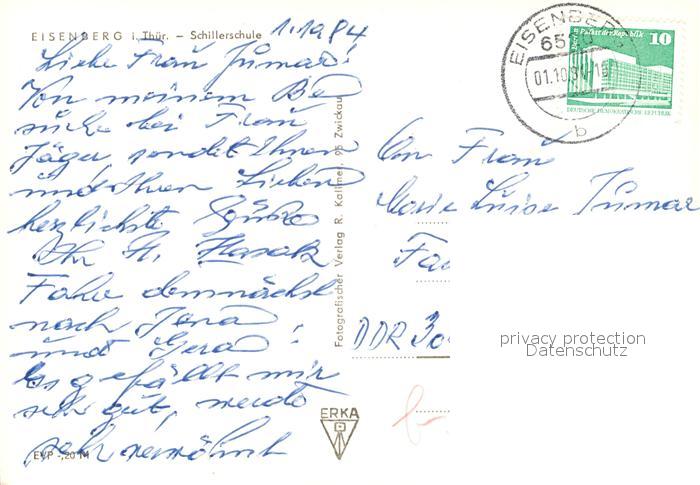 EISENBERG i. Thür. – Schillerschule
1.1984
Liebe Frau Jumar!
Von meinem Be
suche bei Frau
Jäger, sendet Ihnen
und Ihren Lieben
herzlichste Grüße
Ihr H. Hasak
Fahre demnächst
nach Jena
und Gera!
Es gefällt mir
sehr gut, werde
sehr verwöhnt
EVP -,20 M
Fotografischer Verlag R. Kallmer, 95 Zwickau
ERKA
EISENBERG
65
01.10.84-16
b
Palast der Republik
10
DEUTSCHE DEMOKRATISCHE REPUBLIK
An Frau
Marie Luise Jumar
DDR 30
privacy protection
Datenschutz